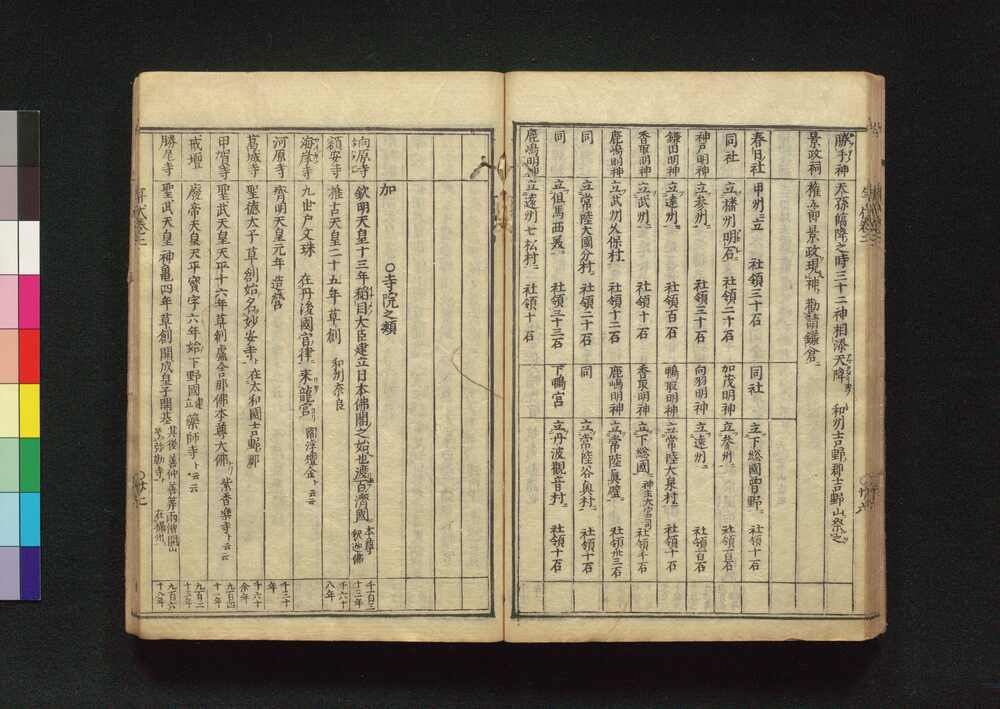 勝手神 天孫臨降之時三十二神相添天降 和州吉野郡吉野山祭之
景政祠 権五郎景政現神 勧請鎌倉ニ
春日社 甲州ニ立 社領三十石 同社 立下総國曽野 社領十石
同社 立播州明石 社領二十石 加茂明神 立参州 社領百石
神戸明神 立参州 社領三十石 向羽明神 立遠州 社領百石
鎌田明神 立遠州 社領百石 鴨取明神 立常陸大泉村 社領十石
香取明神 立武州 社領十石 香取明神 立下総國 神主大宮司 社領千石
鹿嶋明神 立武州久保村 社領十二石 鹿嶋明神 立常陸真壁 社領廿三石
同 立常陸大國分村 社領二十石 同 立常陸谷奥村 社領十石
同 立但馬西 社領三十三石 下鴨宮 立丹波觀音村 社領十石
鹿嶋明神 立遠州七松村 社領十石
加 ○寺院之類
向原寺 欽明天皇十三年稲目大臣建立日本佛閣之始也渡百濟國 本尊釈迦佛 千百三十三年
額安寺 推古天皇二十五年草創 和州奈良 千六十八年
海岸寺 九世戸文珠 在丹後國宮律 来龍宮 閻浮檀金ト云云
河原寺 齊明天皇元年造営 千三十年
葛城寺 聖徳太子草創始名妙安寺ト 在大和國吉野郡 千六十余年
甲賀寺 聖武天皇天平十六年草創盧舎那佛本尊大佛 紫香樂寺ト云云 九百四十一年
戒壇 廢帝天皇天平寳字六年始下野國建立藥師寺ト云云 九百二十三年
勝尾寺 聖武天皇神亀四年草創開成皇子開基 其後善仲善算兩僧開山 号弥勒寺ト 在攝州 九百六十八年